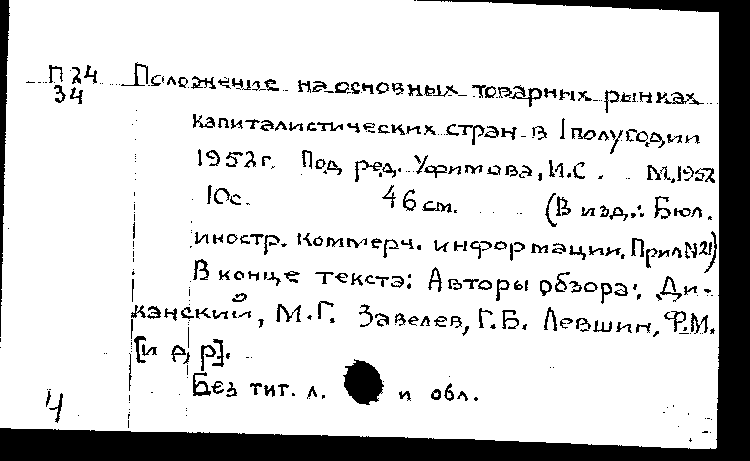 П 24 Положение на основных товарных рынках
34
капиталистических стран в I полугодии
1952 г. Под ред. Уфимова, И.С. М., 1952
10с. 46 см. (В изд.: Бюл.
иностр. коммерч. информации. Прил N 21)
В конце текста: Авторы обзора: Ди-
канский, М.Г. Завелев, Г.Б. Левшин, Ф.М.
[и др].
Без тит. л. и обл.
4